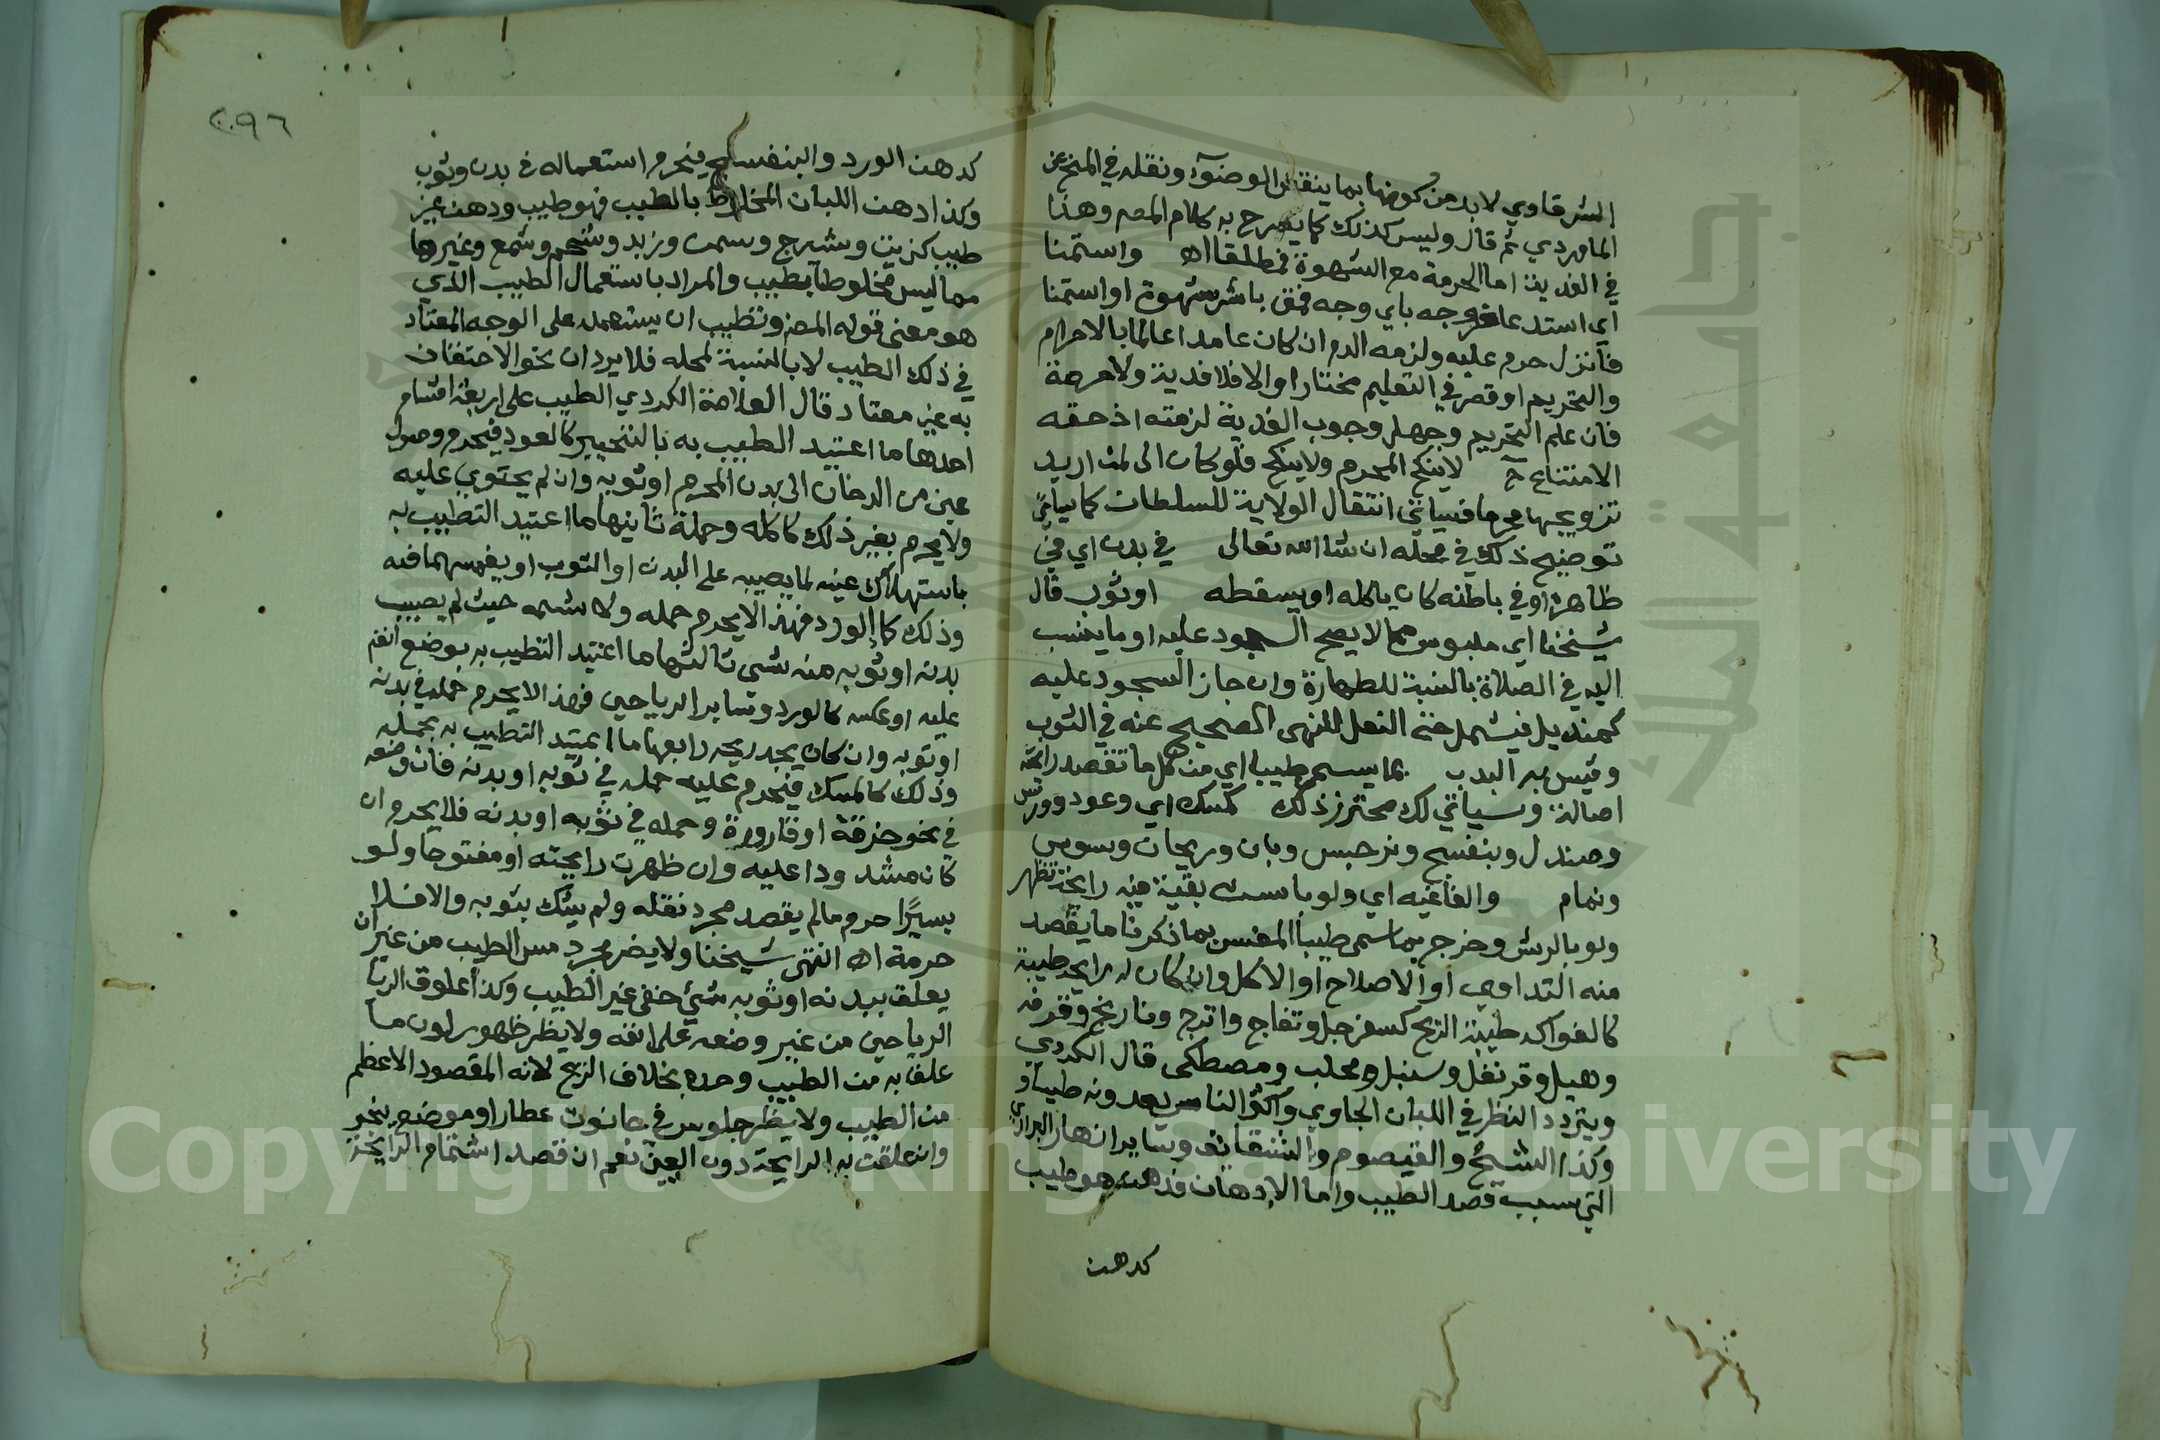 الشرقاوي لابد من كونها بما ينقض الوضوء ونقله في المنح عن
الماوردي ثم قال وليس كذلك كما يصرح به كلام المصـ وهذا
في الفدية اما الحرمة مع الشهوة فمطلقا اه واستمنا
اي استدعا خروجه باي وجه فمتى باشر بشهوة او استمنا
فانزل حرم عليه ولزمه الدم ان كان عامدا عالما بالاحرام
والتحريم او قصر في التعليم مختارا والا فلا فدية ولا حرمة
فان علم التحريم وجهل وجوب الفدية لزمته اذ حقه
الامتناع لا ينكح المحرم ولا ينكح فلو كان الولي لمن اريد
تزويجها محرما فسياتي انتقال الولاية للسلطان كما ياتي
توضيح ذلك في محله ان شا الله تعالى في بدن اي في
ظاهره او في باطنه كان ياكله او يسقطه او ثوب قال
شيخنا اي ملبوس مما لا يصح السجود عليه او ما ينسب
اليه في الصلاة بالنسبة للطهارة وان جاز السجود عليه
كمنديل فيشمل حتى النعل للنهي الصحيح عنه في الثوب
وقيس به البدن بما يسمى طيبا اي من كل ما تقصد رائحته
اصالة وسياتي لك محترز ذلك كمسك اي وعود وورس
وصندل وبنفسج ونرجس وبان وريحان وسوسن
ونمام والفاغيه اي ولو يابسة بقية فيه رايحة تظهر
ولو بالرش وخرج بما سمى طيبا المفسر بما ذكرنا ما يقصد
منه التداوي او الاصلاح او الاكل وان كان له رايحة طيبة
كالفواكه طيبة الريح كسفرجل وتفاح واترج ونارنج وقرفه
وهيل وقرنفل وسنبل ومحلب ومصطكى قال الكردي
ويتردد النظر في اللبان الجاوي واكثر الناس يعدونه طيبا و
وكذا الشيح والقيصوم والشقائق وساير ازهار البراري
التي قصد الطيب واما الادهان فدهن هو طيب
كدهن
٢٩٦
كدهن الورد والبنفسج فيحرم استعماله في بدن وثوب
وكذا دهن اللبان المخلوط بالطيب فهو طيب ودهن غير
طيب كزيت وشيرج وسمن وزبد وشحم وشمع وغيرها
مما ليس مخلوطا بطيب والمراد باستعمال الطيب الذي
هو معنى قوله المصـ وتطييب ان يستعمله على الوجه المعتاد
في ذلك الطيب لا بالنسبة لمحله فلا يرد ان نحو الاحتقان
به غير معتاد قال العلامة الكردي الطيب على اربعة اقسام
احدها ما اعتيد الطيب به بالتبخير كالعود فيحرم وصول
عين من الدخان الى بدن المحرم او ثوبه وان لم يحتوي عليه
ولا يحرم بغير ذلك كاكله وحمله ثانيها ما اعتيد التطيب به
باستهلاك عينه لما يصيبه على البدن او الثوب او يغمسهما فيه
وذلك كما الورد فهذا لا يحرم حمله ولا شمه حيث لم يصيب
بدنه او ثوبه منه شي ثالثها ما اعتيد التطيب به بوضع انفه
عليه او عكسه كالورد وساير الرياحين فهذا لا يحرم حمله في بدنه
او ثوبه وان كان يجد ريحه رابعها ما اعتيد التطيب به بحمله
وذلك كالمسك فيحرم عليه حمله في ثوبه او بدنه فان وضعه
في نحو خرقة او قارورة وحمله في ثوبه او بدنه فلا يحرم ان
كان مشدودا عليه وان ظهرت رايحته او مفتوحا ولو
يسيرا حرم ما لم يقصد مجرد نقله ولم بثوبه والا فلا
حرمة اه انتهى شيخنا ولا يضر مجرد مس الطيب من غير ان
يعلق ببدنه او ثوبه شيئ حتى غير الطيب وكذا علوق
الرياحين من غير وضعه على انفه ولا يظر ظهور لون ما
علق به من الطيب وحده بخلاف الريح لانه المقصود الاعظم
من الطيب ولا يظر جلوس في حانوت عطار او موضع يبخر
وان علقت به الرايحة دون العين نعم ان قصد اشتمام الرايحة